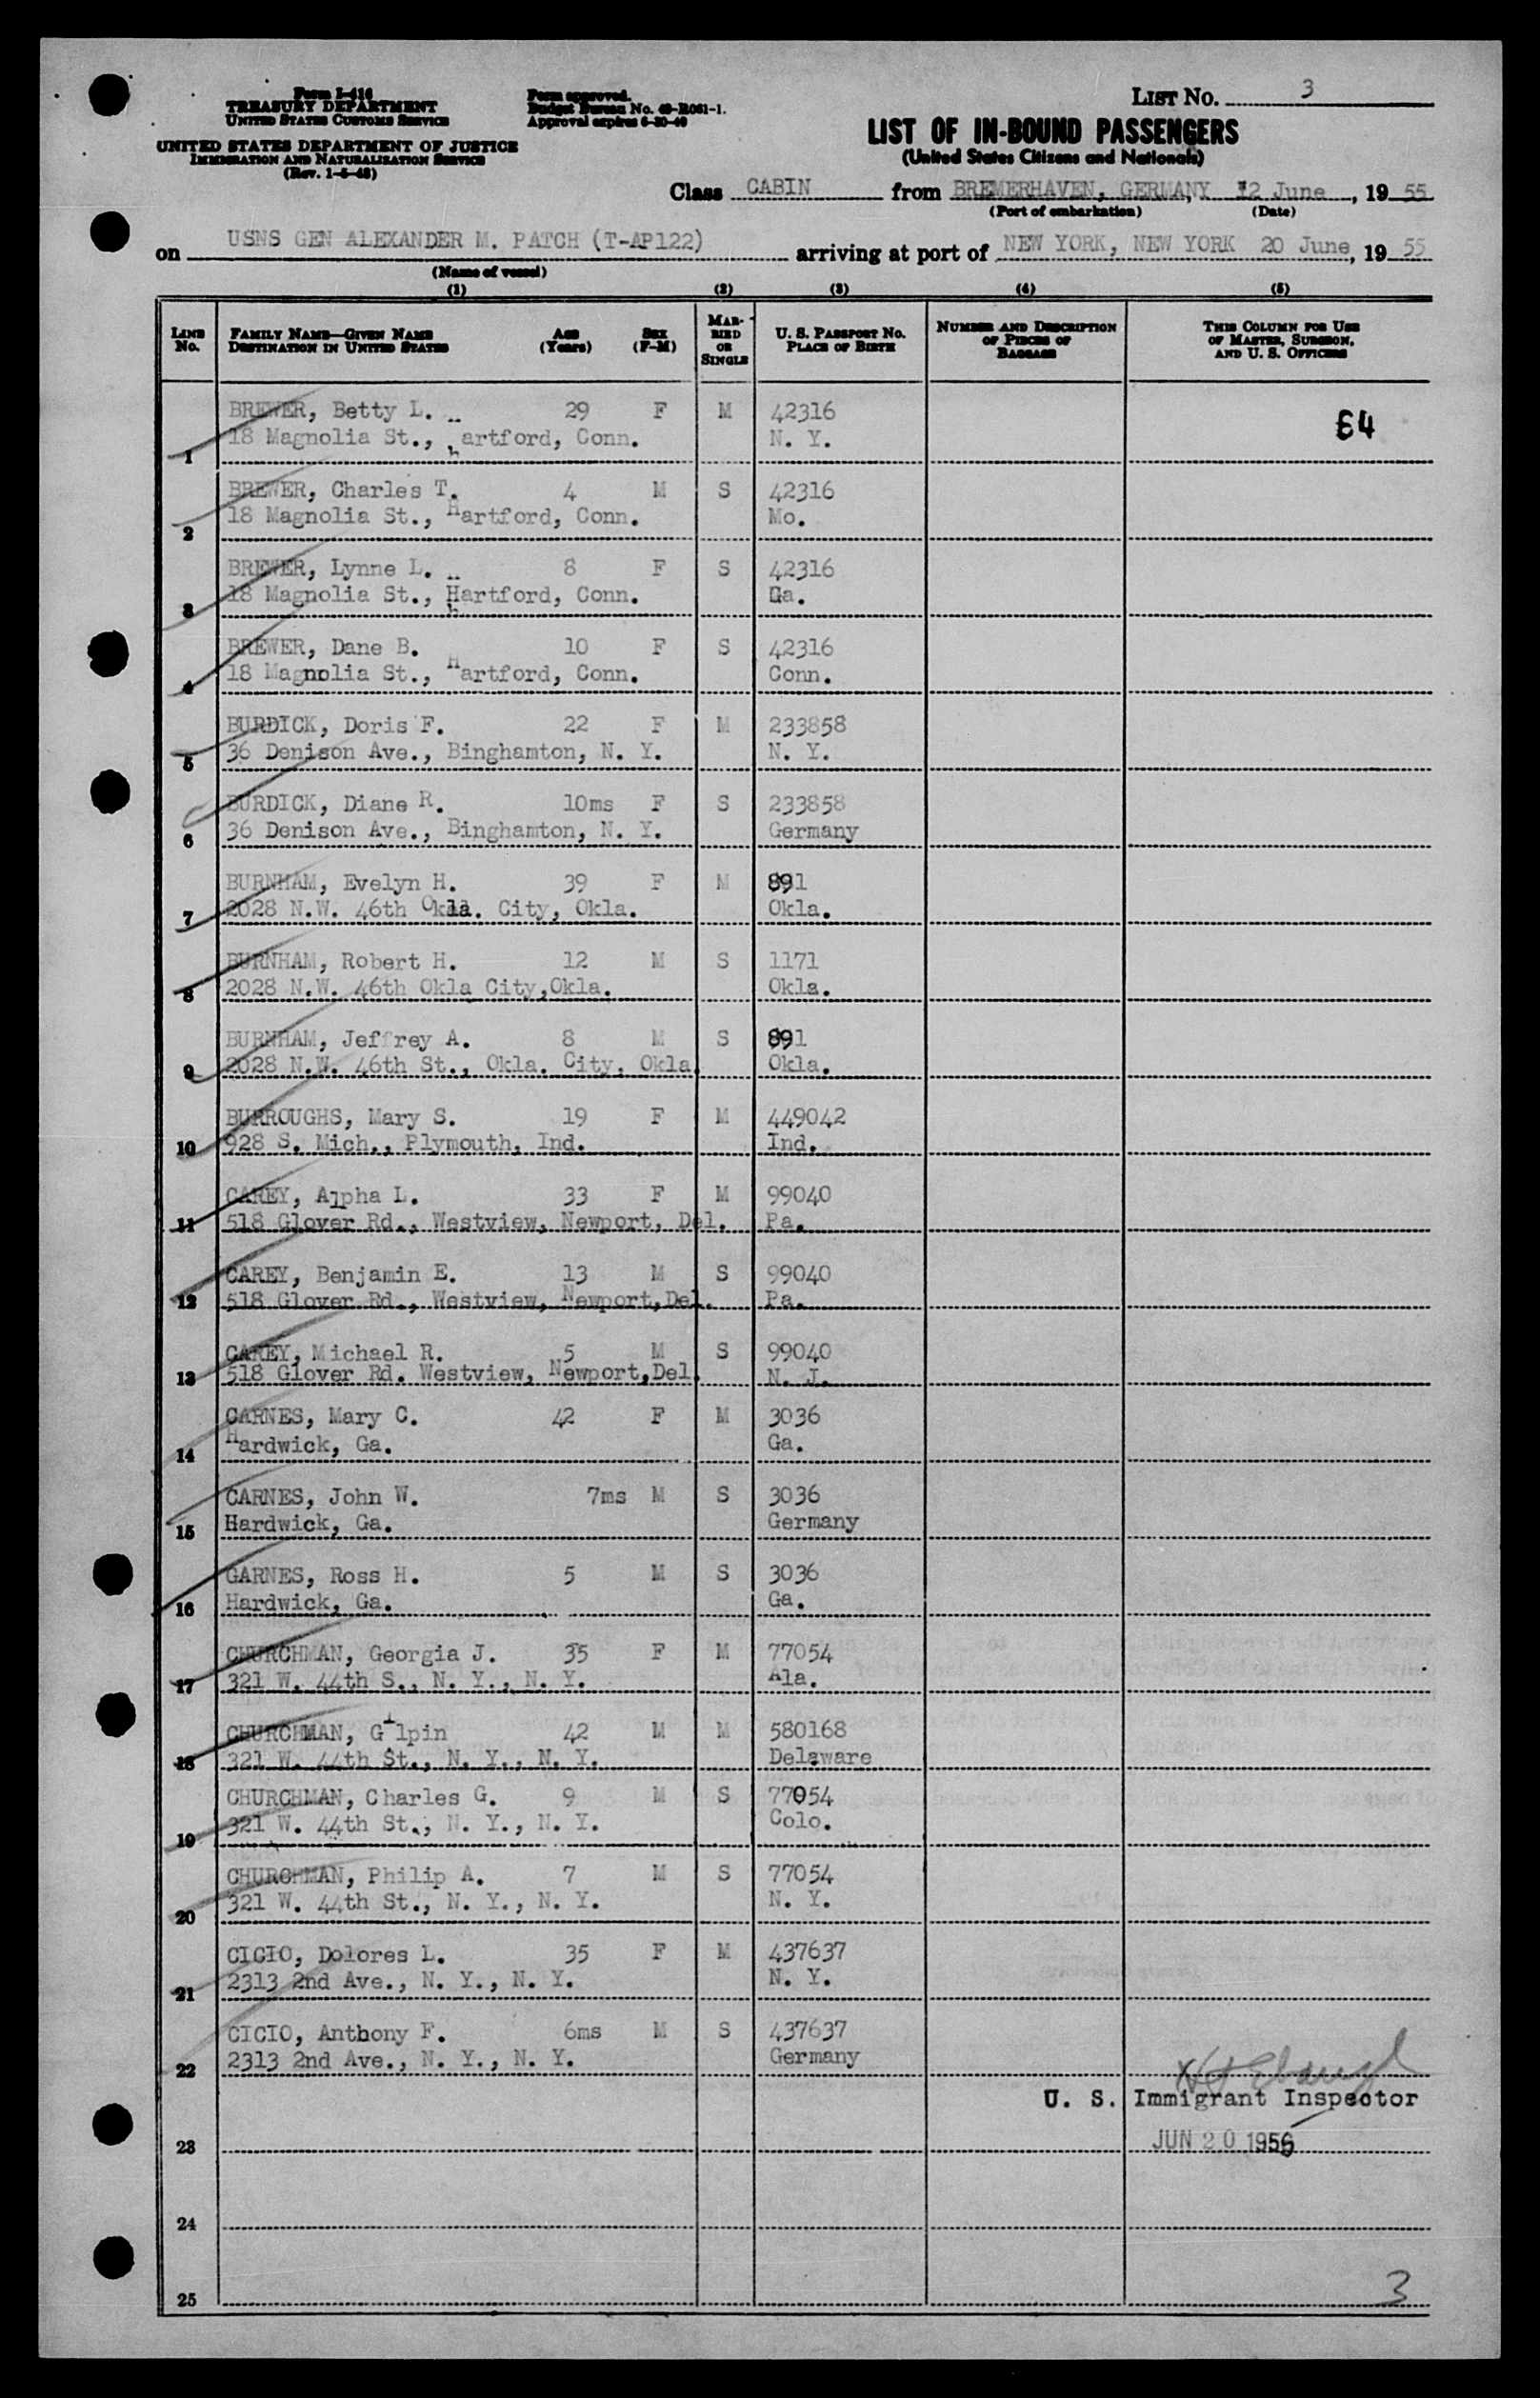 Form I-416
TREASURY DEPARTMENT
UNITED STATES CUSTOMS SERVICE
UNITED STATES DEPARTMENT OF JUSTICE
IMMIGRATION AND NATURALIZATION SERVICE
(Rev. 1-5-48)
Form approved.
Budget Bureau No. 43-R061-1.
Approval expires 6-30-49
LIST NO. 3
LIST OF IN-BOUND PASSENGERS
(United States Citizens and Nationals)
Class CABIN from BREMERHAVEN, GERMANY 12 June, 1955
(Port of embarkation) (Date)
on USNS GEN ALEXANDER M. PATCH (T-AP122) arriving at port of NEW YORK, NEW YORK 20 June, 1955
(Name of vessel)
(1) (2) (3) (4) (5)
LINE NO. FAMILY NAME—GIVEN NAME DESTINATION IN UNITED STATES AGE (Years) SEX (F-M) MARRIED OR SINGLE U. S. PASSPORT NO. PLACE OF BIRTH NUMBER AND DESCRIPTION OF PIECES OF BAGGAGE THIS COLUMN FOR USE OF MASTER, SURGEON, AND U. S. OFFICERS
BREWER, Betty L. 29 F M 42316 64
1 18 Magnolia St., hartford, Conn. N. Y.
BREWER, Charles T. 4 M S 42316
2 18 Magnolia St., Hartford, Conn. Mo.
BREWER, Lynne L. 8 F S 42316
3 18 Magnolia St., Hartford, Conn. Ga.
BREWER, Dane B. 10 F S 42316
4 18 Magnolia St., Hartford, Conn. Conn.
BURDICK, Doris F. 22 F M 233858
5 36 Denison Ave., Binghamton, N. Y. N. Y.
BURDICK, Diane R. 10ms F S 233858
6 36 Denison Ave., Binghamton, N. Y. Germany
BURNHAM, Evelyn H. 39 F M 891
7 2028 N.W. 46th Okla. City, Okla. Okla.
BURNHAM, Robert H. 12 M S 1171
8 2028 N.W. 46th Okla City,Okla. Okla.
BURNHAM, Jeffrey A. 8 M S 891
9 2028 N.W. 46th St., Okla. City, Okla. Okla.
BURROUGHS, Mary S. 19 F M 449042
10 928 S. Mich., Plymouth, Ind. Ind.
CAREY, Alpha L. 33 F M 99040
11 518 Glover Rd., Westview, Newport, Del. Pa.
CAREY, Benjamin E. 13 M S 99040
12 518 Glover Rd., Westview, Newport,Del. Pa.
CAREY, Michael R. 5 M S 99040
13 518 Glover Rd. Westview, Newport,Del. N. J.
CARNES, Mary C. 42 F M 3036
14 Hardwick, Ga. Ga.
CARNES, John W. 7ms M S 3036
15 Hardwick, Ga. Germany
CARNES, Ross H. 5 M S 3036
16 Hardwick, Ga. Ga.
CHURCHMAN, Georgia J. 35 F M 77054
17 321 W. 44th S., N. Y., N. Y. Ala.
CHURCHMAN, Gilpin 42 M M 580168
18 321 W. 44th St., N. Y., N. Y. Delaware
CHURCHMAN, Charles G. 9 M S 77054
19 321 W. 44th St., N. Y., N. Y. Colo.
CHURCHMAN, Philip A. 7 M S 77054
20 321 W. 44th St., N. Y., N. Y. N. Y.
CICIO, Dolores L. 35 F M 437637
21 2313 2nd Ave., N. Y., N. Y. N. Y.
CICIO, Anthony F. 6ms M S 437637
22 2313 2nd Ave., N. Y., N. Y. Germany
U. S. Immigrant Inspector
JUN 20 1955
23
24
25
3